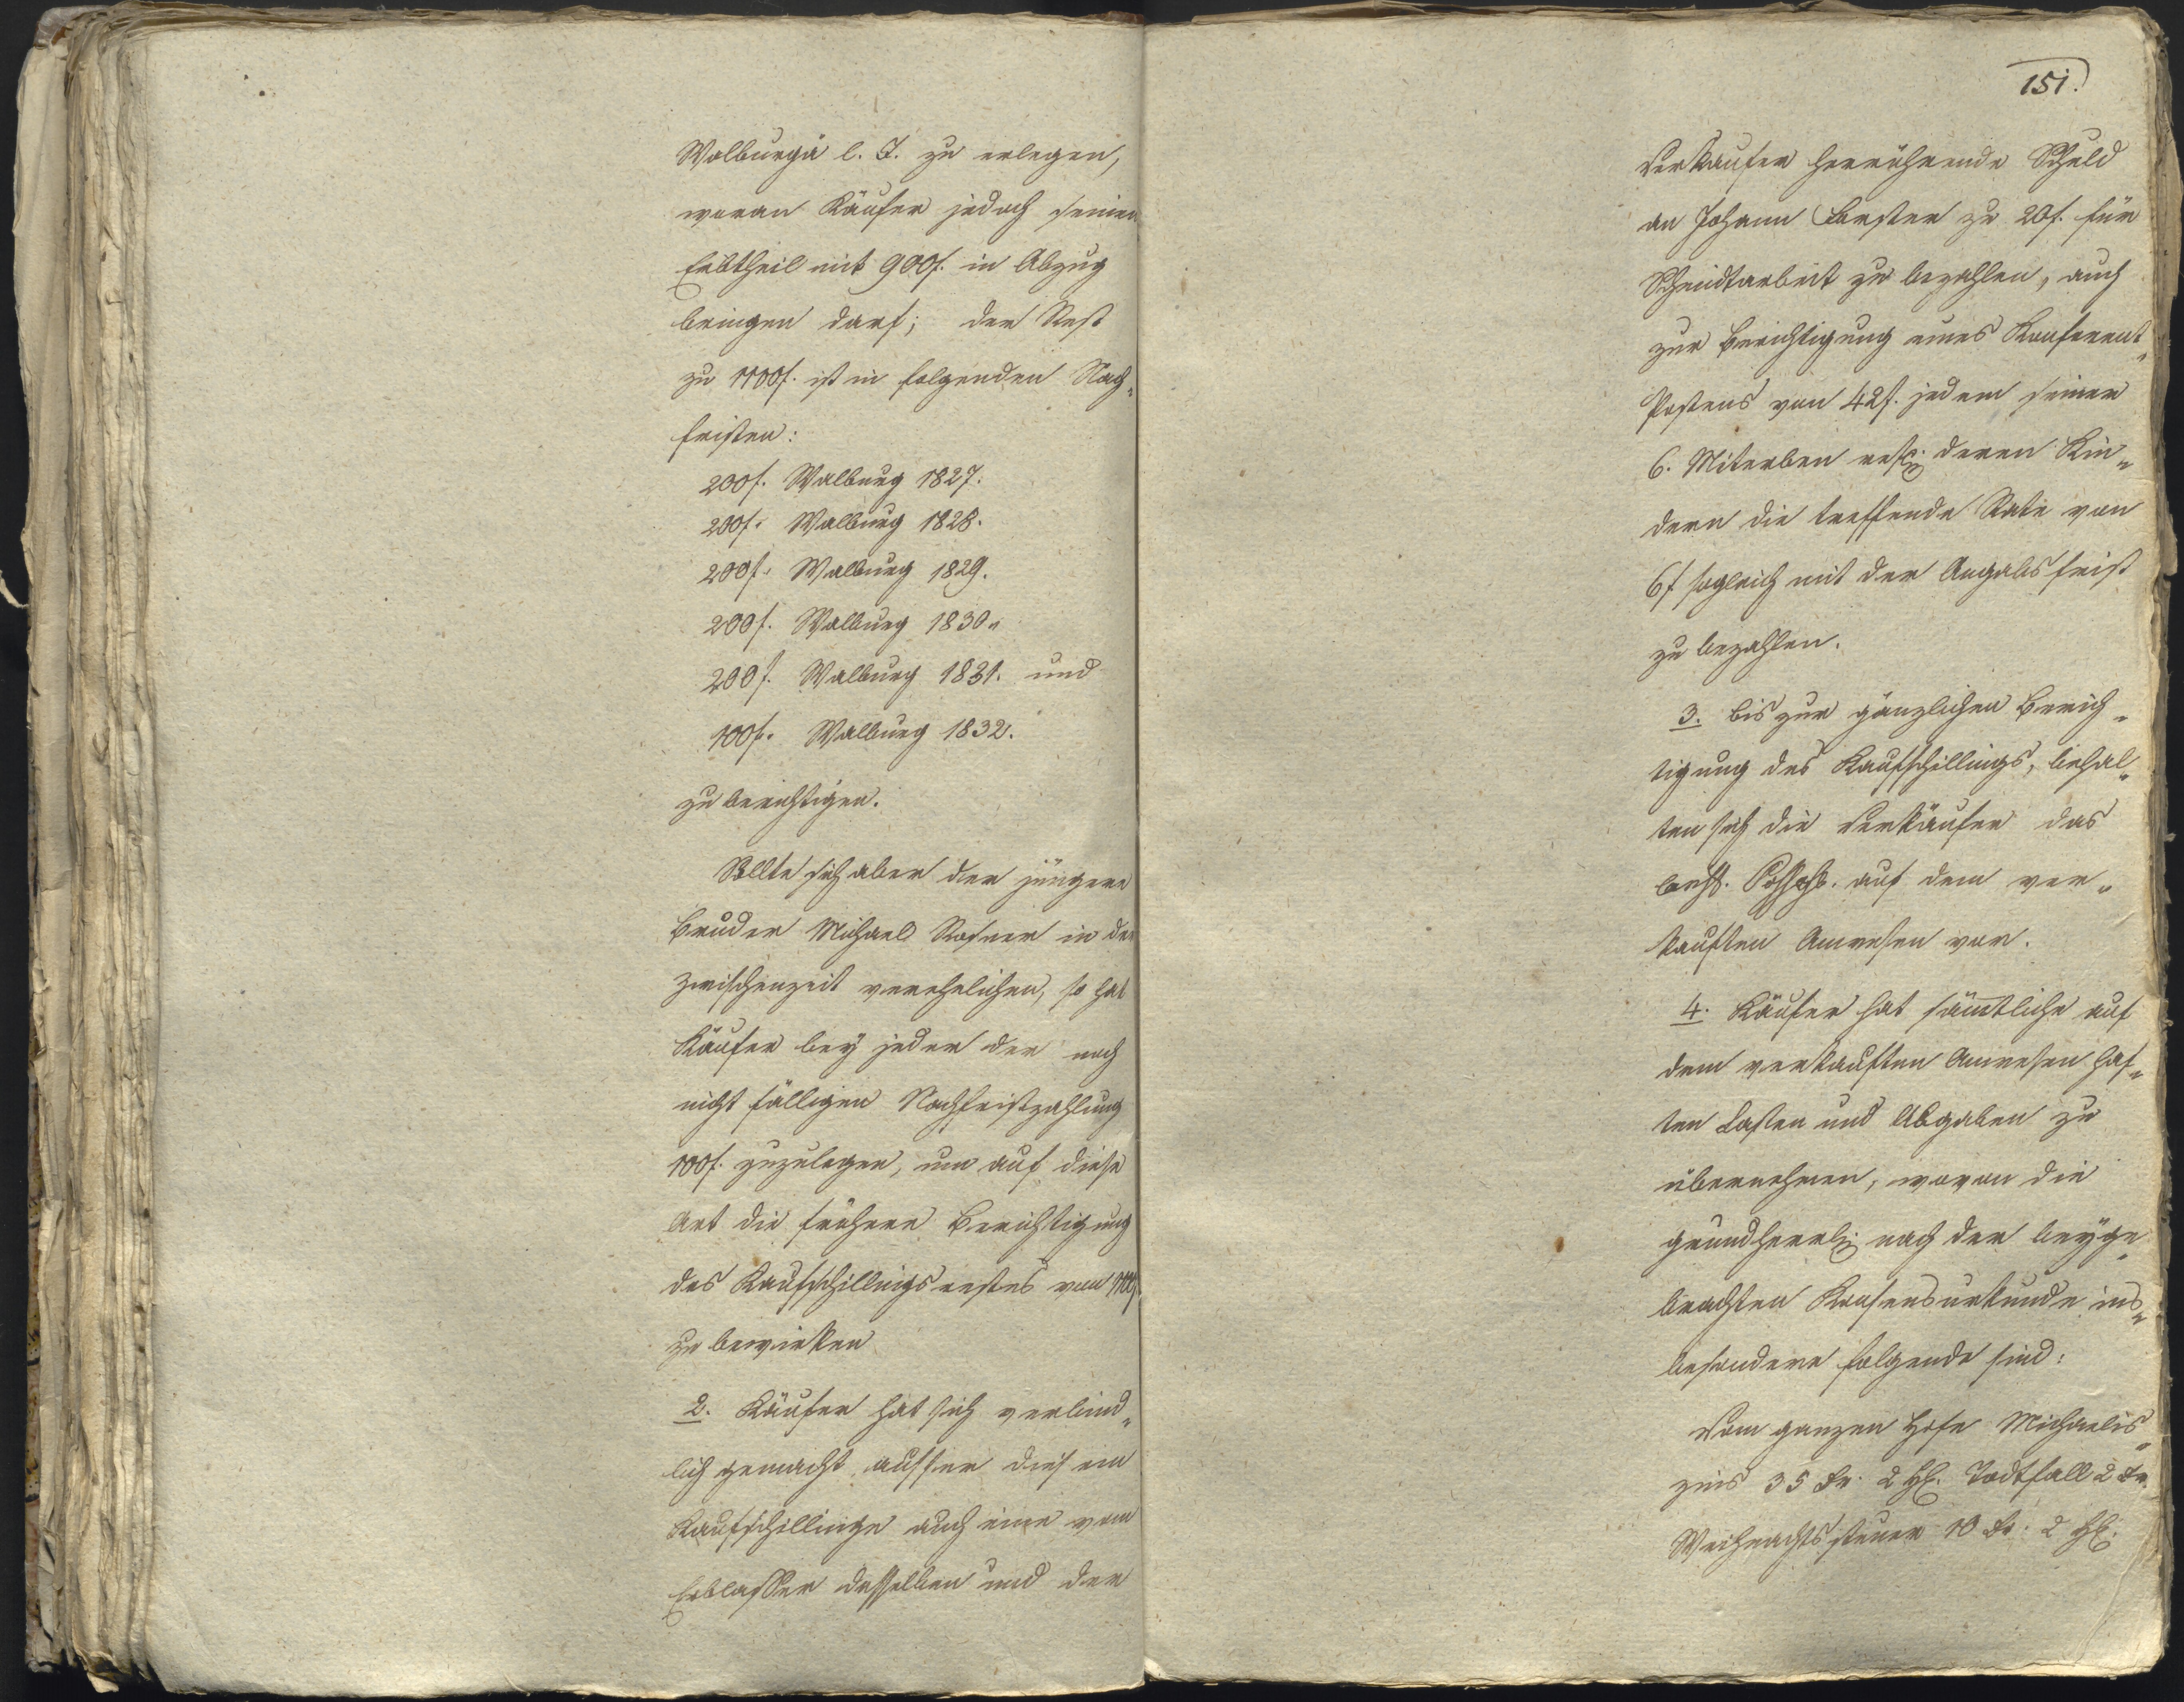 Walburgi l. J. zu erlegen,
woran Käufer jedoch seinen
Erbtheil mit 900 f. in Abzug
bringen darf; der Rest
zu 1100 f. ist in folgenden Nach-
fristen:
200 f. Walburg 1827.
200 f. Walburg 1828.
200 f. Walburg 1829.
200 f. Walburg 1830.
200 f. Walburg 1831. und
100 f. Walburg 1832.
zu berichtigen.
Sollte sich aber der jüngere
Bruder Michael in der
Zwischenzeit verehelichen, so hat
Käufer bey jeder der noch
nicht fälligen Nachfristzahlung
100 f. zuzulegen, um auf diese
Art die frühere Berichtigung
des Kaufschillingsrestes von 1100 f.
zu bewirken
2. Käufer hat sich verbind-
lich gemacht ausser diesem
Kaufschillinge auch eine vom
Erblasser desselben und der
151.
Verkäufer herrührende Schuld
an Johann zu 20 f. für
Schmidtarbeit zu bezahlen, auch
zur Berichtigung eines
Postens von 42 f. jedem seiner
6. Miterben resp. deren Kin-
dern die treffende Rate von
6 f sogleich mit der Angabsfrist
zu bezahlen.
3. bis zur gänzlichen Berich-
tigung des Kaufschillings, behal-
ten sich die Verkäufer das
auf dem ver-
kauften Anwesen vor.
4. Käufer hat sämtliche auf
dem verkauften Anwesen haf-
ten Lasten und Abgaben zu
übernehmen, wovon die
grundherrl. nach der beyge-
brachten Konsensurkunde ins-
besondere folgende sind:
Vom ganzen Hofe Michaelis-
zins 35 Kr. 2 hl. Todtfall 2 Kr.
Weihnachtssteuer 10 Kr. 2 hl.